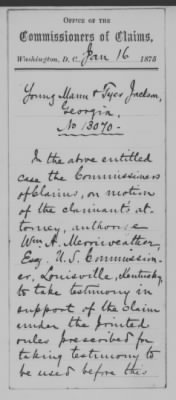 OFFICE OF THE
Commissioners of Claims,
Washington, D. C. Jan 16 1875
Young Mann & Tyer Jackson,
Georgia,
No 13070.
In the above entitled
case the Commissioners
of Claims, on motion
of the claimants' at-
torney, authorize
Wm A. Merriweather,
Esq. U.S. Commission-
er, Louisville, Kentucky,
to take testimony in
support of the claim
under the printed
rules prescribed for
taking testimony to
be used before this